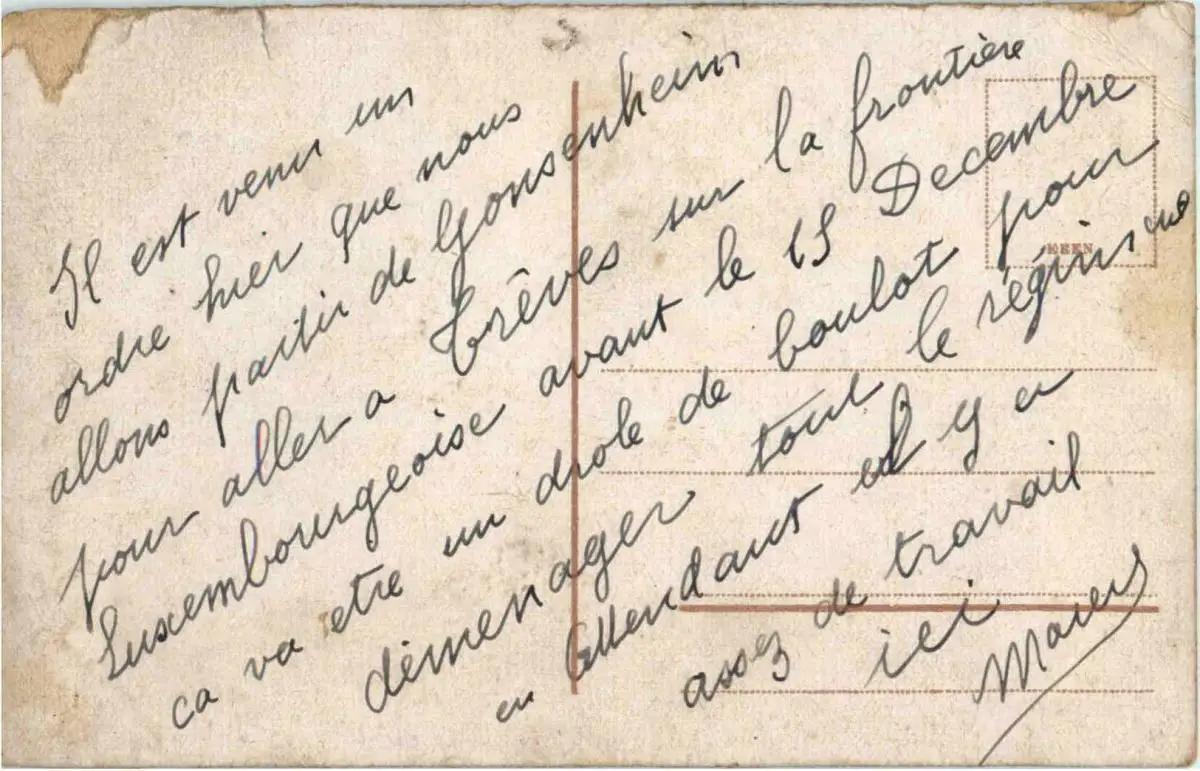 Il est venu un
ordre hier que nous
allons partir de Gonsenheim
pour aller a Trêves sur la frontière
Luxembourgeoise avant le 15 Decembre
ca va etre un drole de boulot pour
démenager tout le régim
en attendant il y a
assez de travail
ici